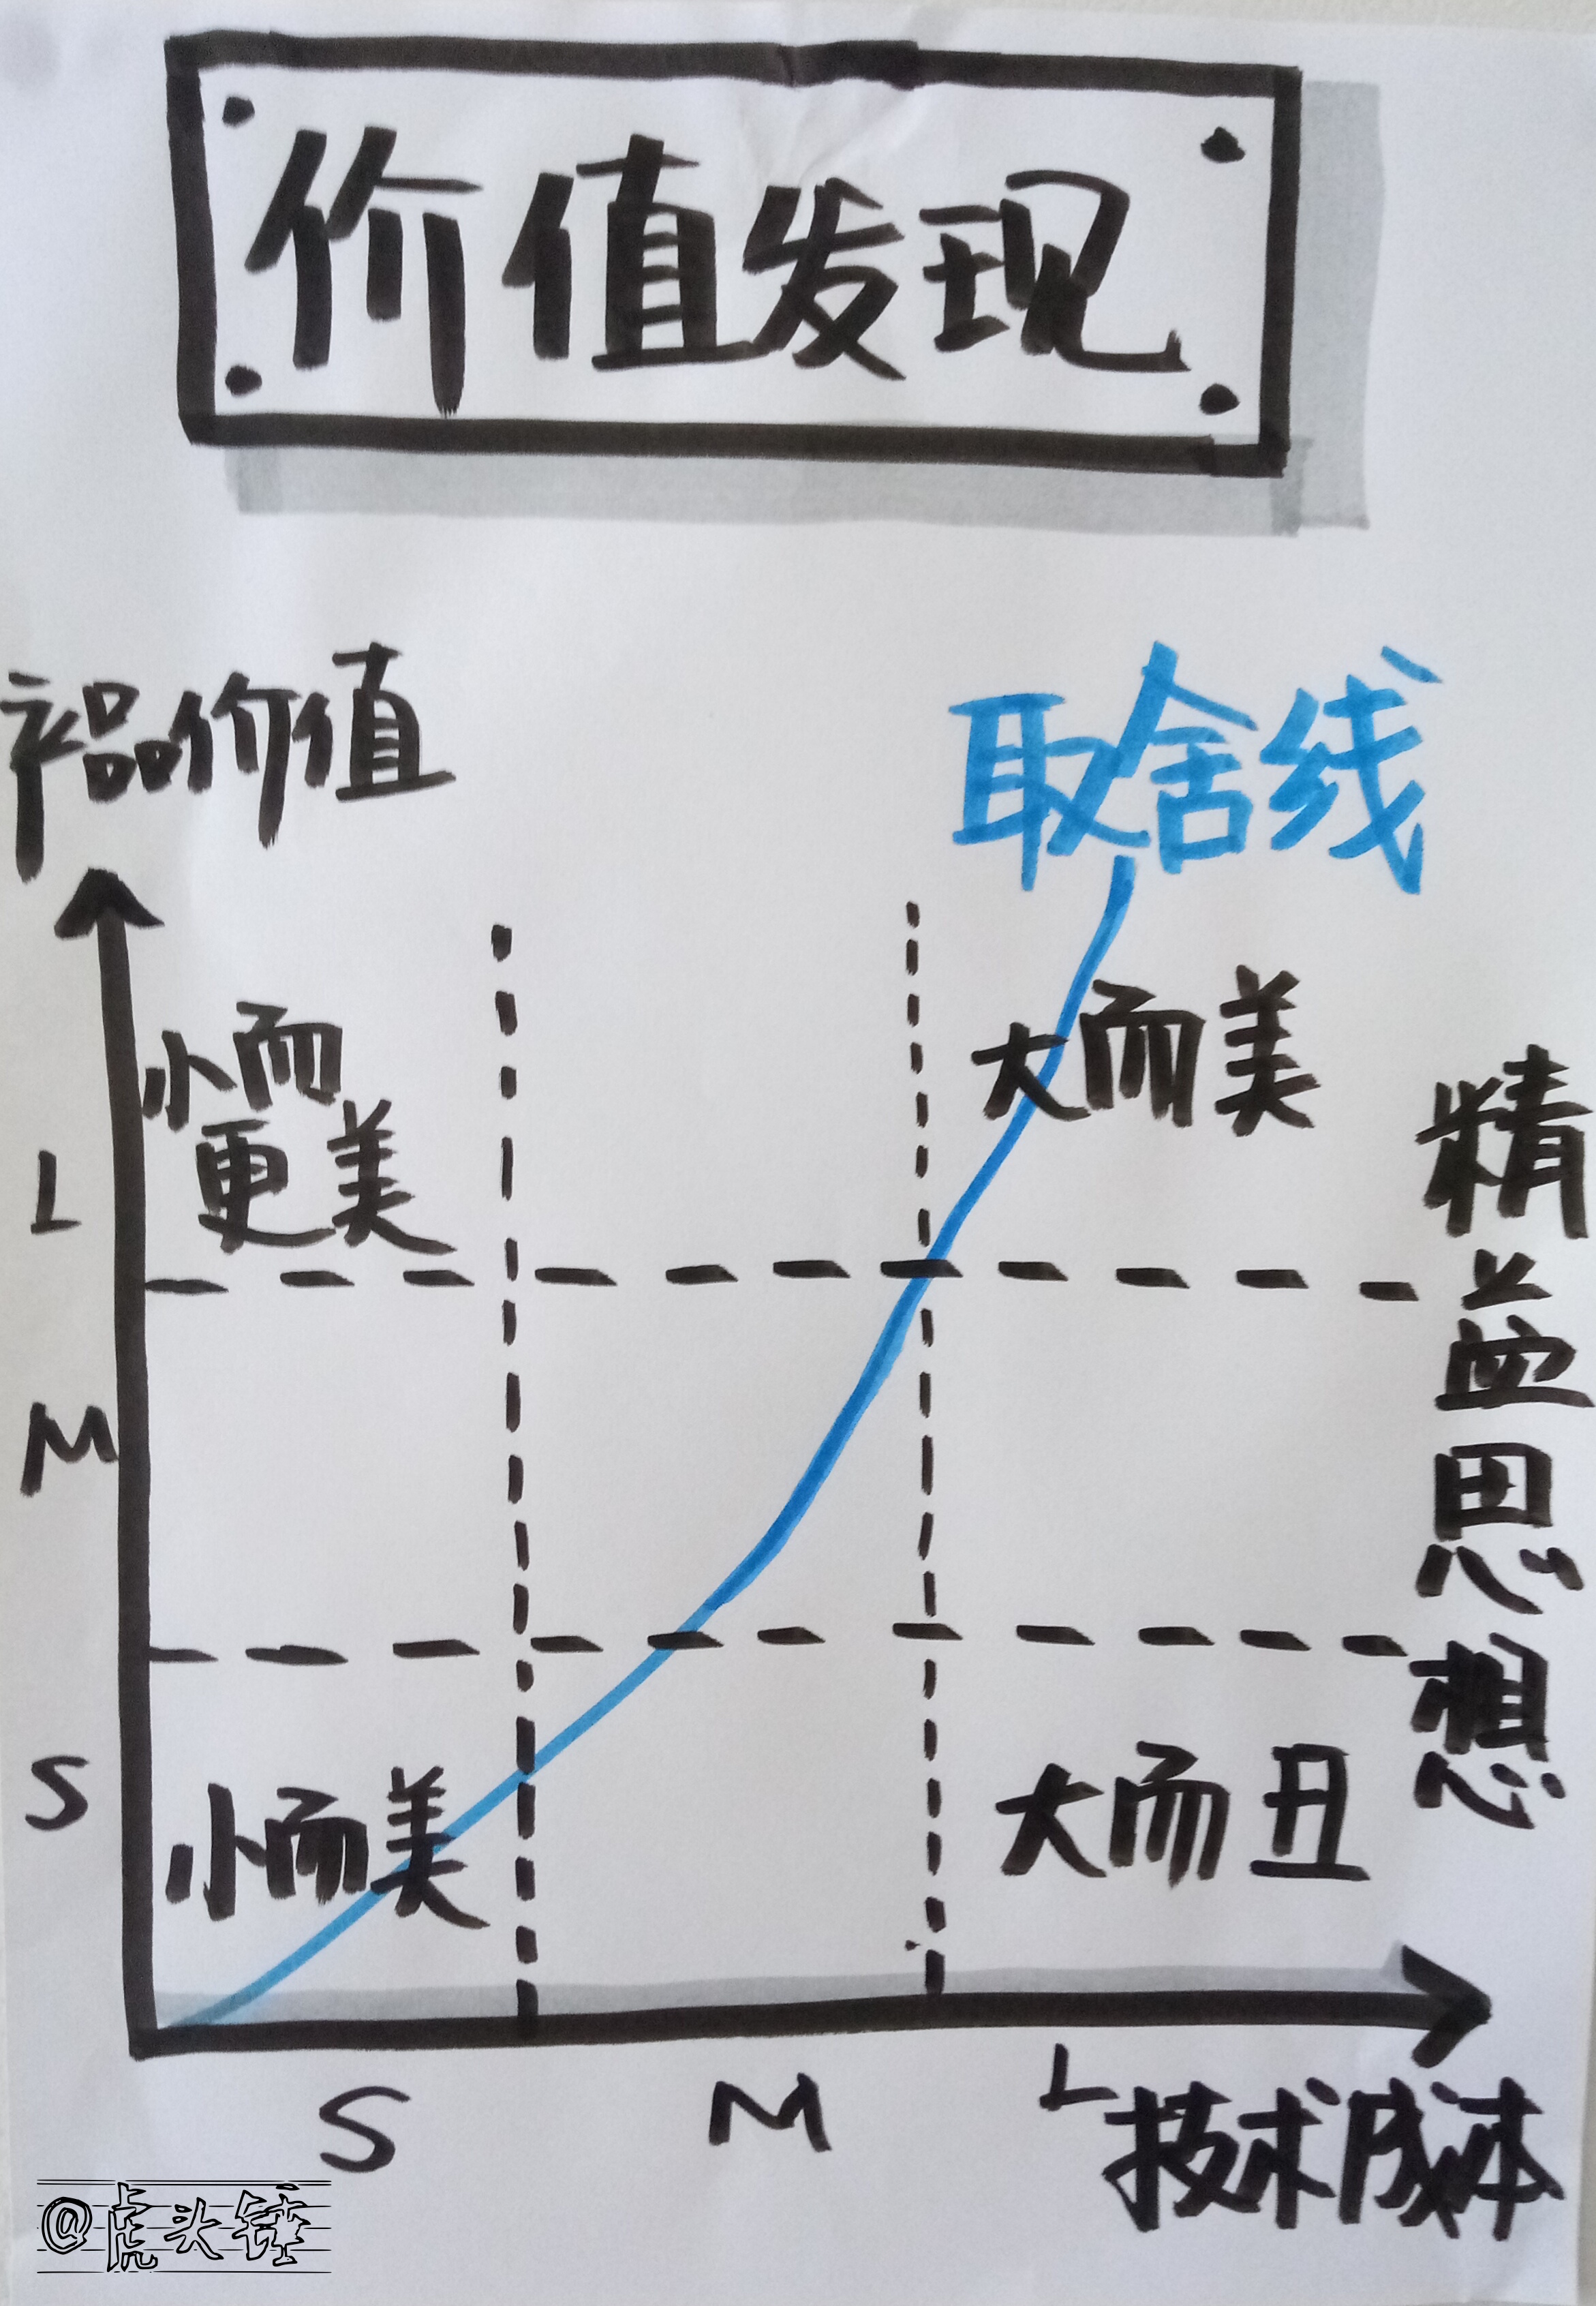 价值发现
产品价值
取舍线
小而
更美
大而美
L
M
S
小而美
大而丑
精益思想
S
M
L
技术成本
@虎头锤